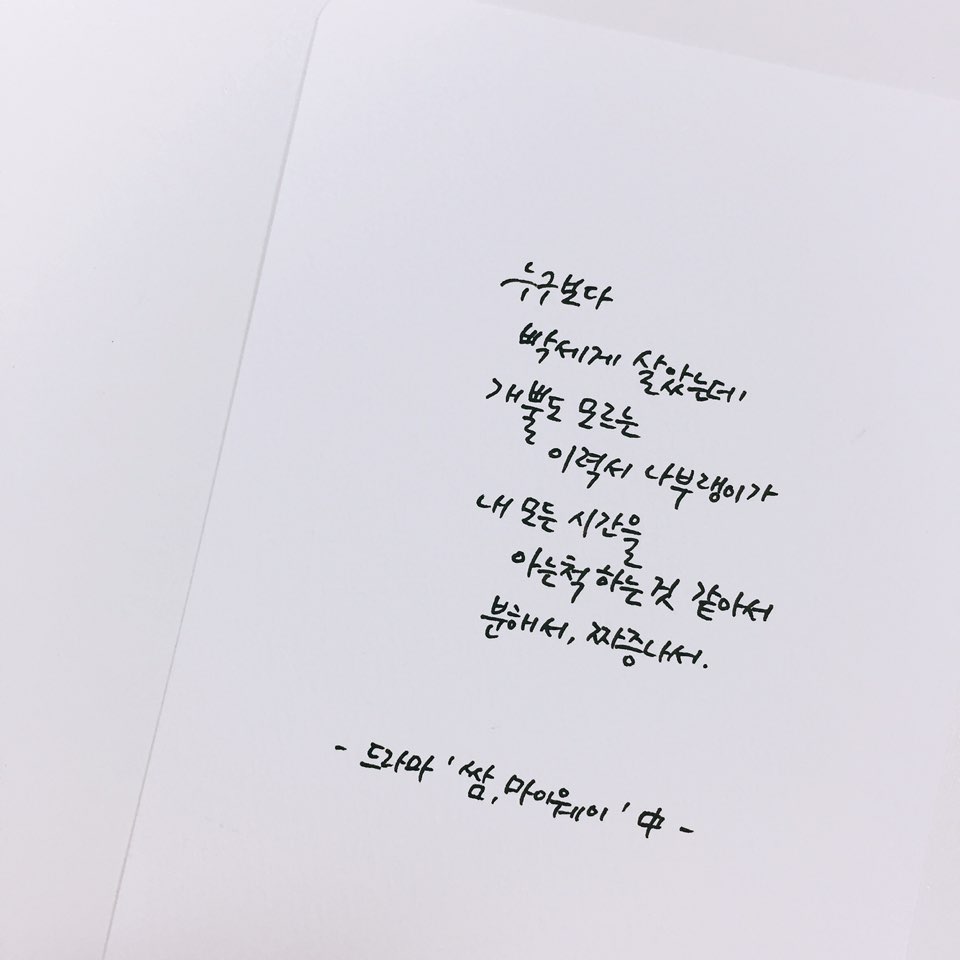 누구보다
빡세게 살았는데,
개뿔도 모르는
이력서 나부랭이가
내 모든 시간을
아는척 하는 것 같아서
분해서, 짜증나서.
- 드라마 '쌈, 마이웨이' 中 -